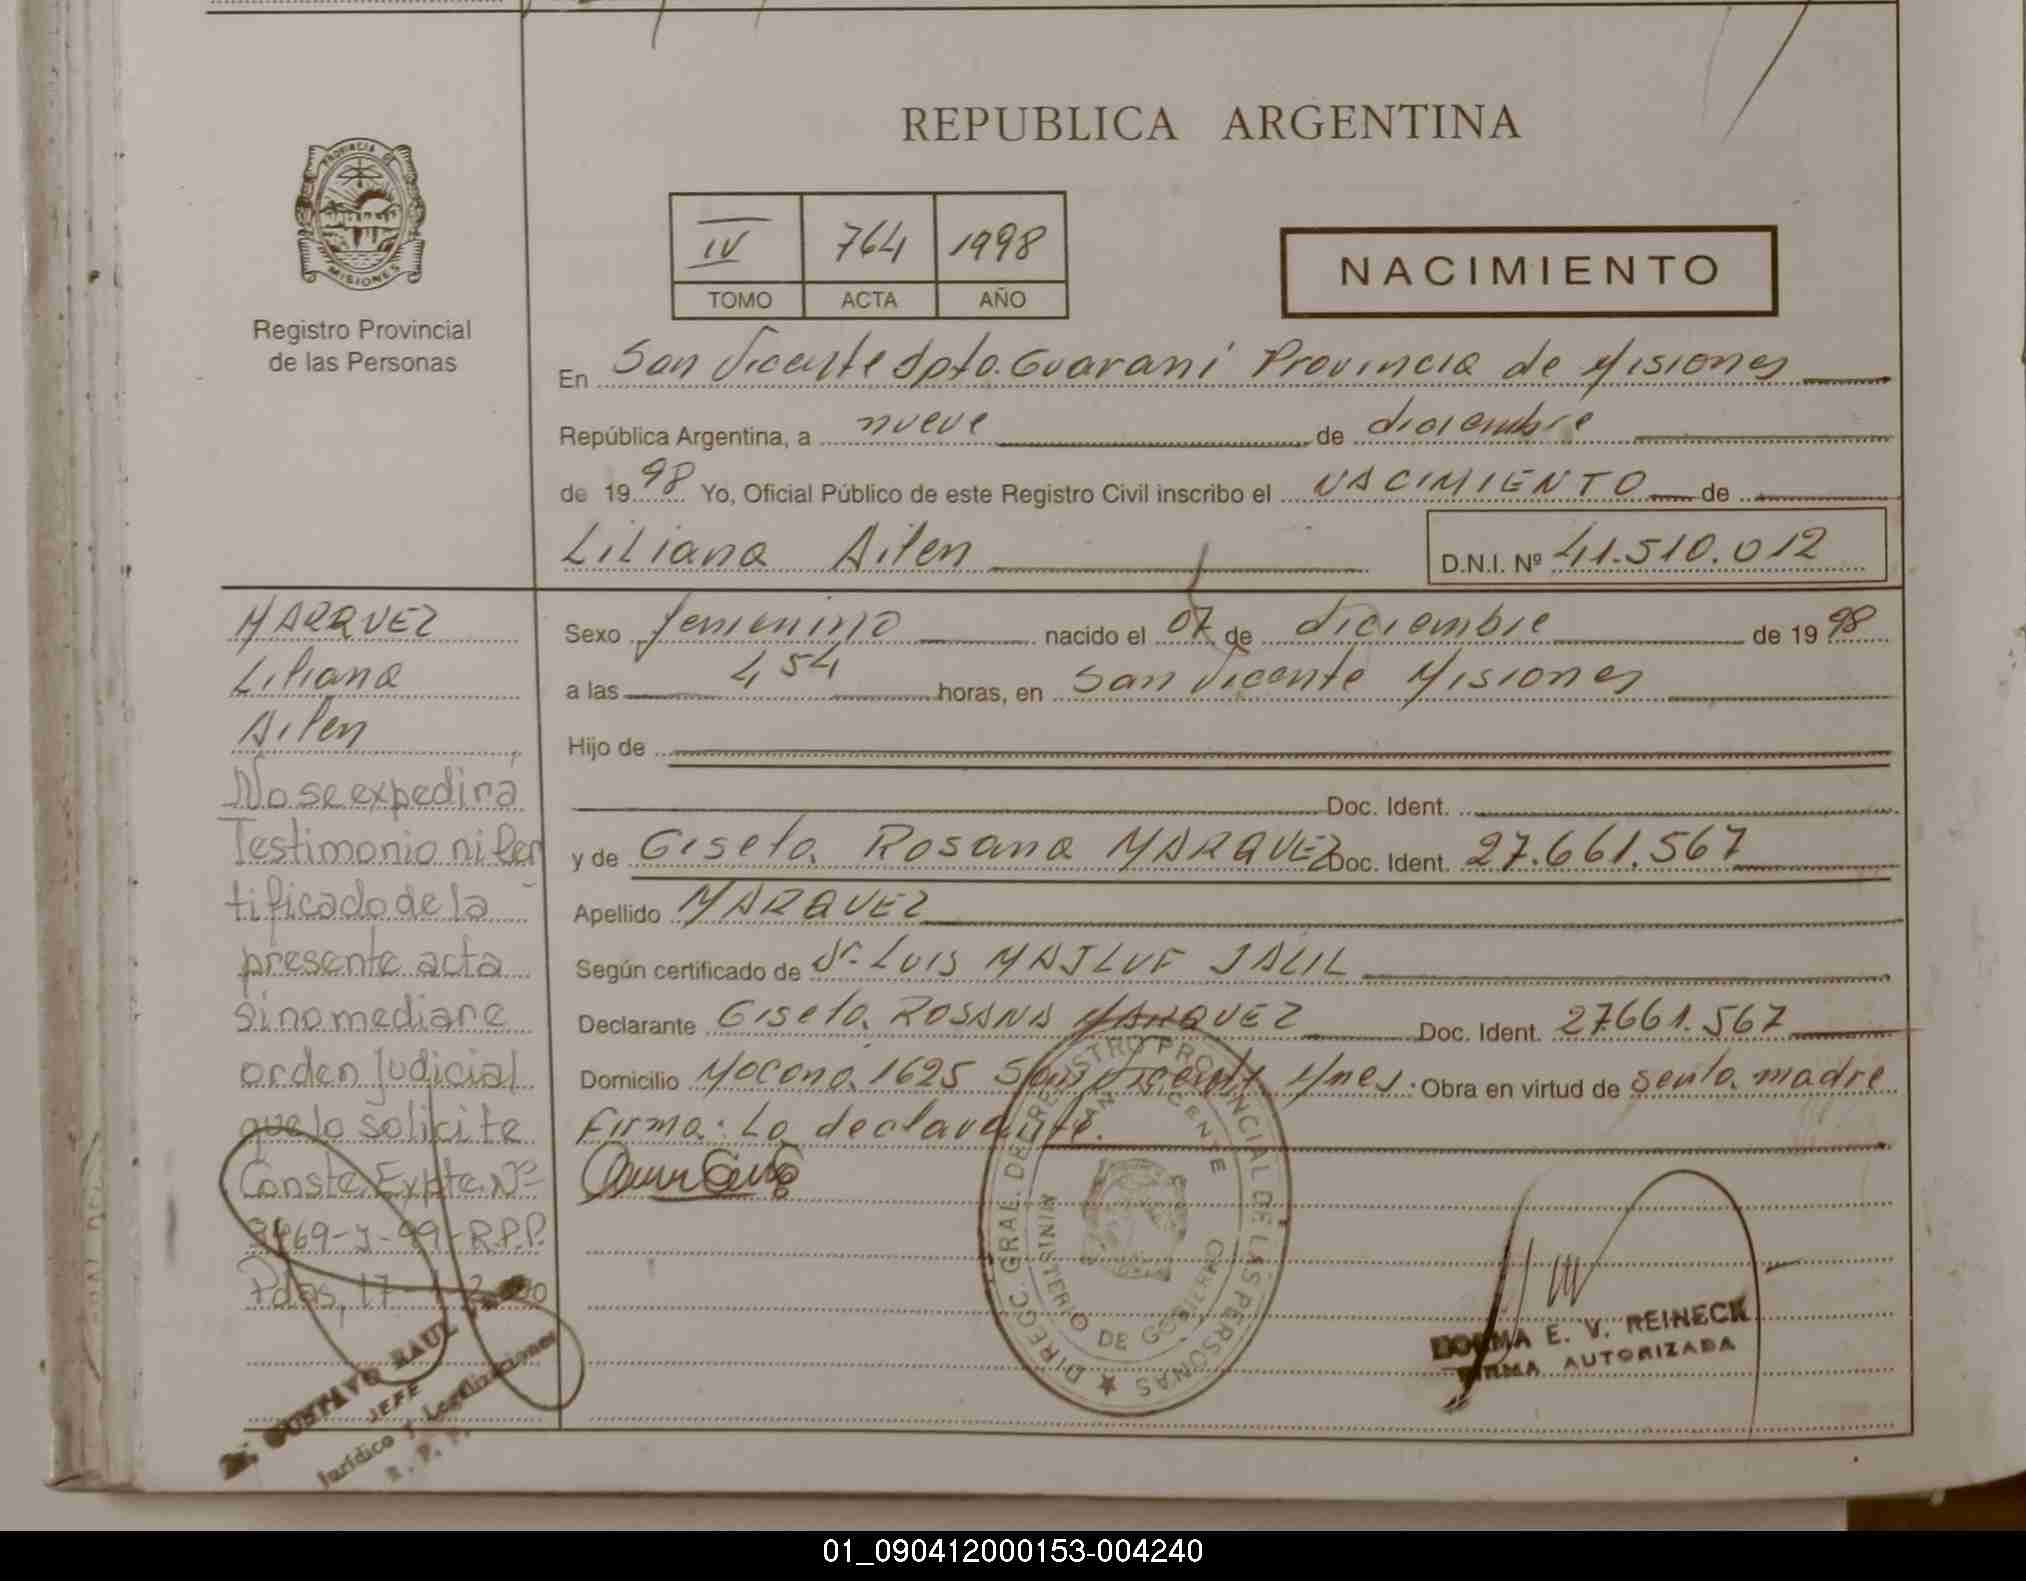 REPUBLICA ARGENTINA
PROVINCIA DE
MISIONES
Registro Provincial
de las Personas
IV 764 1998
TOMO ACTA AÑO
NACIMIENTO
En San Vicente Dpto. Guaraní Provincia de Misiones
República Argentina, a nueve de diciembre
de 1998 Yo, Oficial Público de este Registro Civil inscribo el NACIMIENTO de
Liliana Ailen D.N.I. Nº 41.510.012
Sexo femenino nacido el 07 de diciembre de 1998
a las 4,54 horas, en San Vicente Misiones
Hijo de
Doc. Ident.
y de Gisela Rosana MARQUEZ Doc. Ident. 27.661.567
Apellido MARQUEZ
Según certificado de Dr. LUIS MAJLUF JALIL
Declarante Gisela ROSANA MARQUEZ Doc. Ident. 27.661.567
Domicilio Mocona 1625 San Vicente Mnes. Obra en virtud de ser la madre
Firma: La declarante.
MARQUEZ
Liliana
Ailen
No se expedira
Testimonio ni Cer
tificado de la
presente acta
si no mediare
orden Judicial
que lo solicite
Conste. Expte. Nº
-99-R.P.P.
Pdas, 17-
GUSTAVO RAUL
JEFE
Jurídico y Legalizaciones
R. P. P.
DIREC. GRAL. DEL REGISTRO PROVINCIAL DE LAS PERSONAS
SAN VICENTE
MINISTERIO DE GOBIERNO
E. V. REINECK
FIRMA AUTORIZADA
01_090412000153-004240